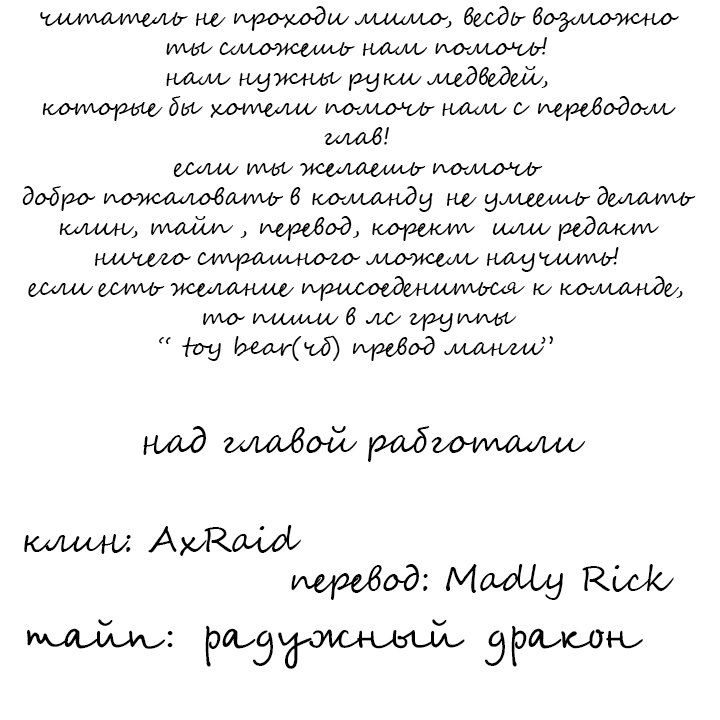 читатель не проходи мимо, весдь возможно
ты сможешь нам помочь!
нам нужны руки медведей,
которые бы хотели помочь нам с переводом
глав!
если ты желаешь помочь
добро пожаловать в команду не умеешь делать
клин, тайп , перевод, корект или редакт
ничего страшного можем научить!
если есть желание присоедениться к команде,
то пиши в лс группы
“ toy bear(чб) превод манги”
над главой рабготали
клин: AxRaid
перевод: Madly Rick
тайп: радужный дракон